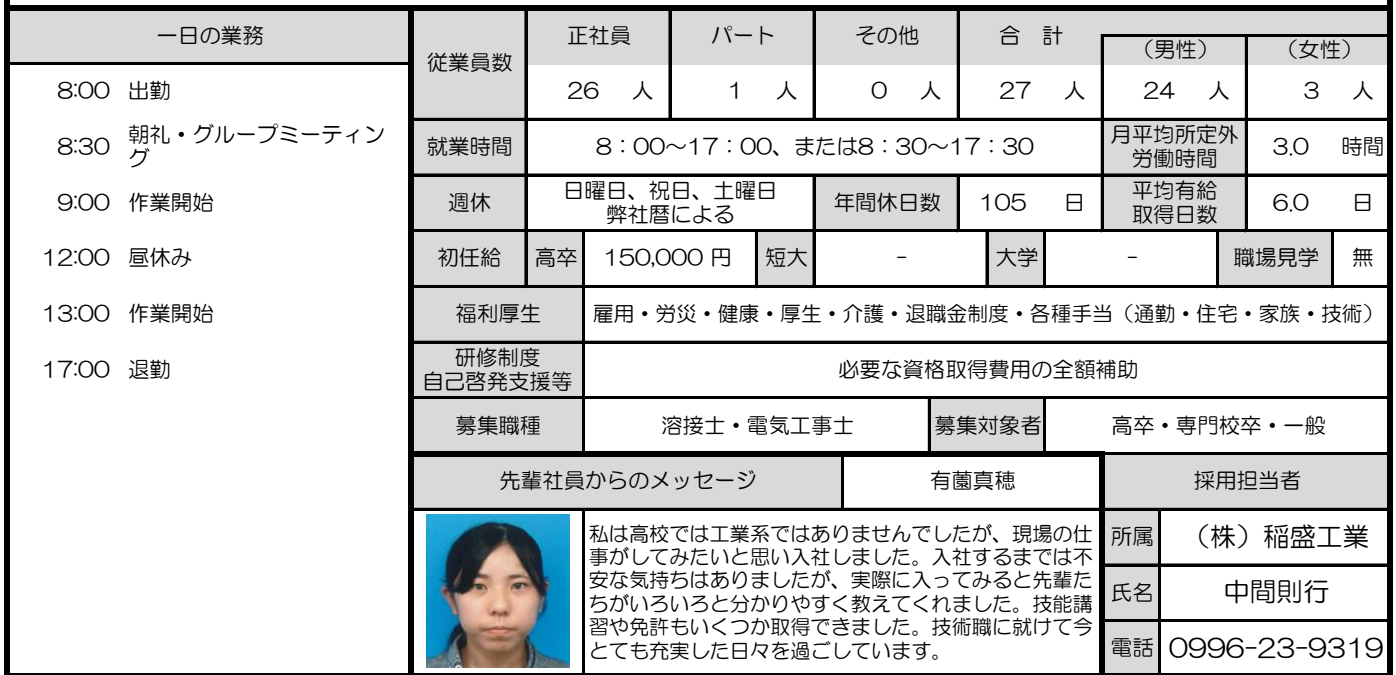 一日の業務
8:00 出勤
8:30 朝礼・グループミーティン
グ
9:00 作業開始
12:00 昼休み
13:00 作業開始
17:00 退勤
従業員数 正社員 パート その他 合 計 (男性) (女性)
26 人 1 人 0 人 27 人 24 人 3 人
就業時間 8:00〜17:00、または8:30〜17:30 月平均所定外
労働時間 3.0 時間
週休 日曜日、祝日、土曜日
弊社暦による 年間休日数 105 日 平均有給
取得日数 6.0 日
初任給 高卒 150,000 円 短大 - 大学 - 職場見学 無
福利厚生 雇用・労災・健康・厚生・介護・退職金制度・各種手当(通勤・住宅・家族・技術)
研修制度
自己啓発支援等 必要な資格取得費用の全額補助
募集職種 溶接士・電気工事士 募集対象者 高卒・専門校卒・一般
先輩社員からのメッセージ 有薗真穂
私は高校では工業系ではありませんでしたが、現場の仕
事がしてみたいと思い入社しました。入社するまでは不
安な気持ちはありましたが、実際に入ってみると先輩た
ちがいろいろと分かりやすく教えてくれました。技能講
習や免許もいくつか取得できました。技術職に就けて今
とても充実した日々を過ごしています。
採用担当者
所属 (株)稲盛工業
氏名 中間則行
電話 0996-23-9319